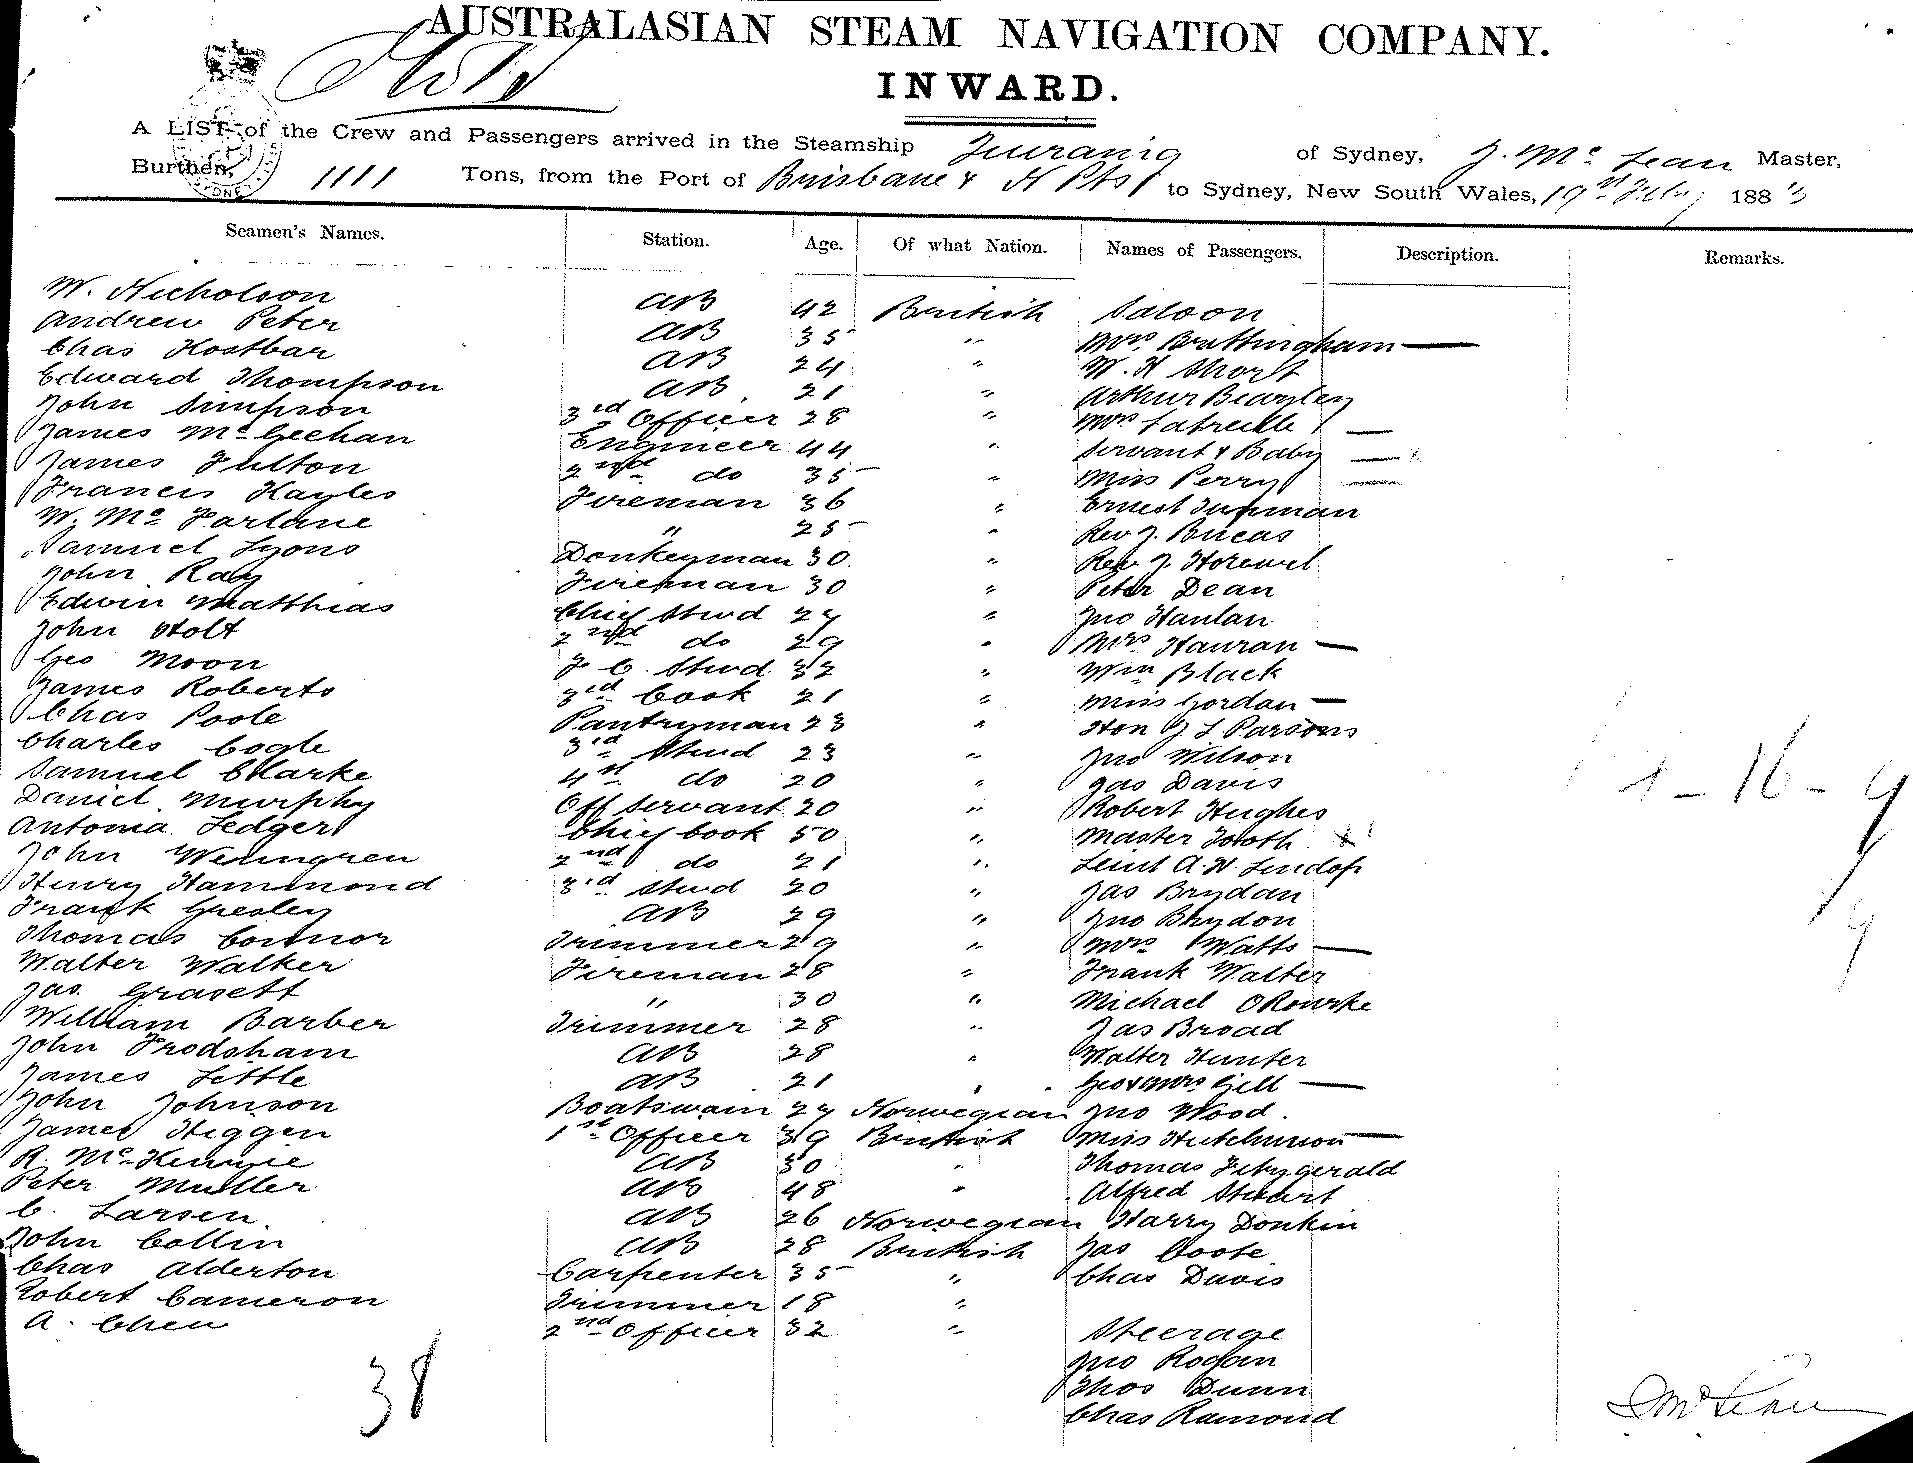 AUSTRALASIAN STEAM NAVIGATION COMPANY.
INWARD.
A LIST of the Crew and Passengers arrived in the Steamship of Sydney, J. Mc Lean Master,
Burthen, 1111 Tons, from the Port of Brisbane & to Sydney, New South Wales, 19th Feby 1883
Seamen's Names. Station. Age. Of what Nation. Names of Passengers. Description. Remarks.
W. Nicholson AB 42 British Saloon
Andrew Peter AB 35 " Mrs. Brattingham —
Chas Kostbar AB 24 " W. H Short
Edward Thompson AB 21 " Arthur Beazley
John Simpson 3rd Officer 28 " Mrs Latreille —
James McGeehan Engineer 44 " Servant & Baby —
James Fulton 2nd do 35 " Miss Perry —
Francis Hayles Fireman 36 " Ernest
W. Mc Farlane " 25 " Rev J. Bucas
Samuel Lyons Donkeyman 30 " Rev J.
John Ray Fireman 30 " Peter Dean
Edwin Matthias Chief Stwd 27 " Jno Hanlan
John Holt 2nd do 29 " Mrs Hanran —
Geo Moon F C. Stwd 32 " Wm Black
James Roberts 3rd Cook 21 " Miss Gordon —
Chas Poole Pantryman 23 " Hon J L Parsons
Charles Cogle 3rd Stwd 23 " Jno Wilson
Samuel Clarke 4th do 20 " Jas Davis
Daniel Murphy Off Servant 20 " Robert Hughes
Antoma Ledger Chief Cook 50 " Master Tooth
John Weningren 2nd do 21 " Leiut A. H. Lindop
Henry Hammond 3rd Stwd 20 " Jas Brydan
Frank Gresley AB 29 " Jno Brydon
Thomas Connor Trimmer 29 " Mrs Watts —
Walter Walker Fireman 28 " Frank Walter
Jas. Grasett " 30 " Michael ORourke
William Barber Trimmer 28 " Jas Broad
John Frodsham AB 28 " Walter Hunter
James Little AB 21 " Geo & Mrs Gill —
John Johnson Boatswain 27 Norwegian Jno Wood.
James Higgin 1st Officer 39 British Miss Hutchinson —
R. McKennie AB 30 " Thomas Fitzgerald
Peter Muller AB 48 " Alfred Stewart
C. Larsen. AB 26 Norwegian Harry Donkin
John Collin AB 28 British Jas Coote
Chas Alderton Carpenter 35 " Chas Davis
Robert Cameron Trimmer 18 "
A. Chen 2nd Officer 32 " Steerage
Jno Rogan
Thos Dunn
Chas Ramond
38
J McLean